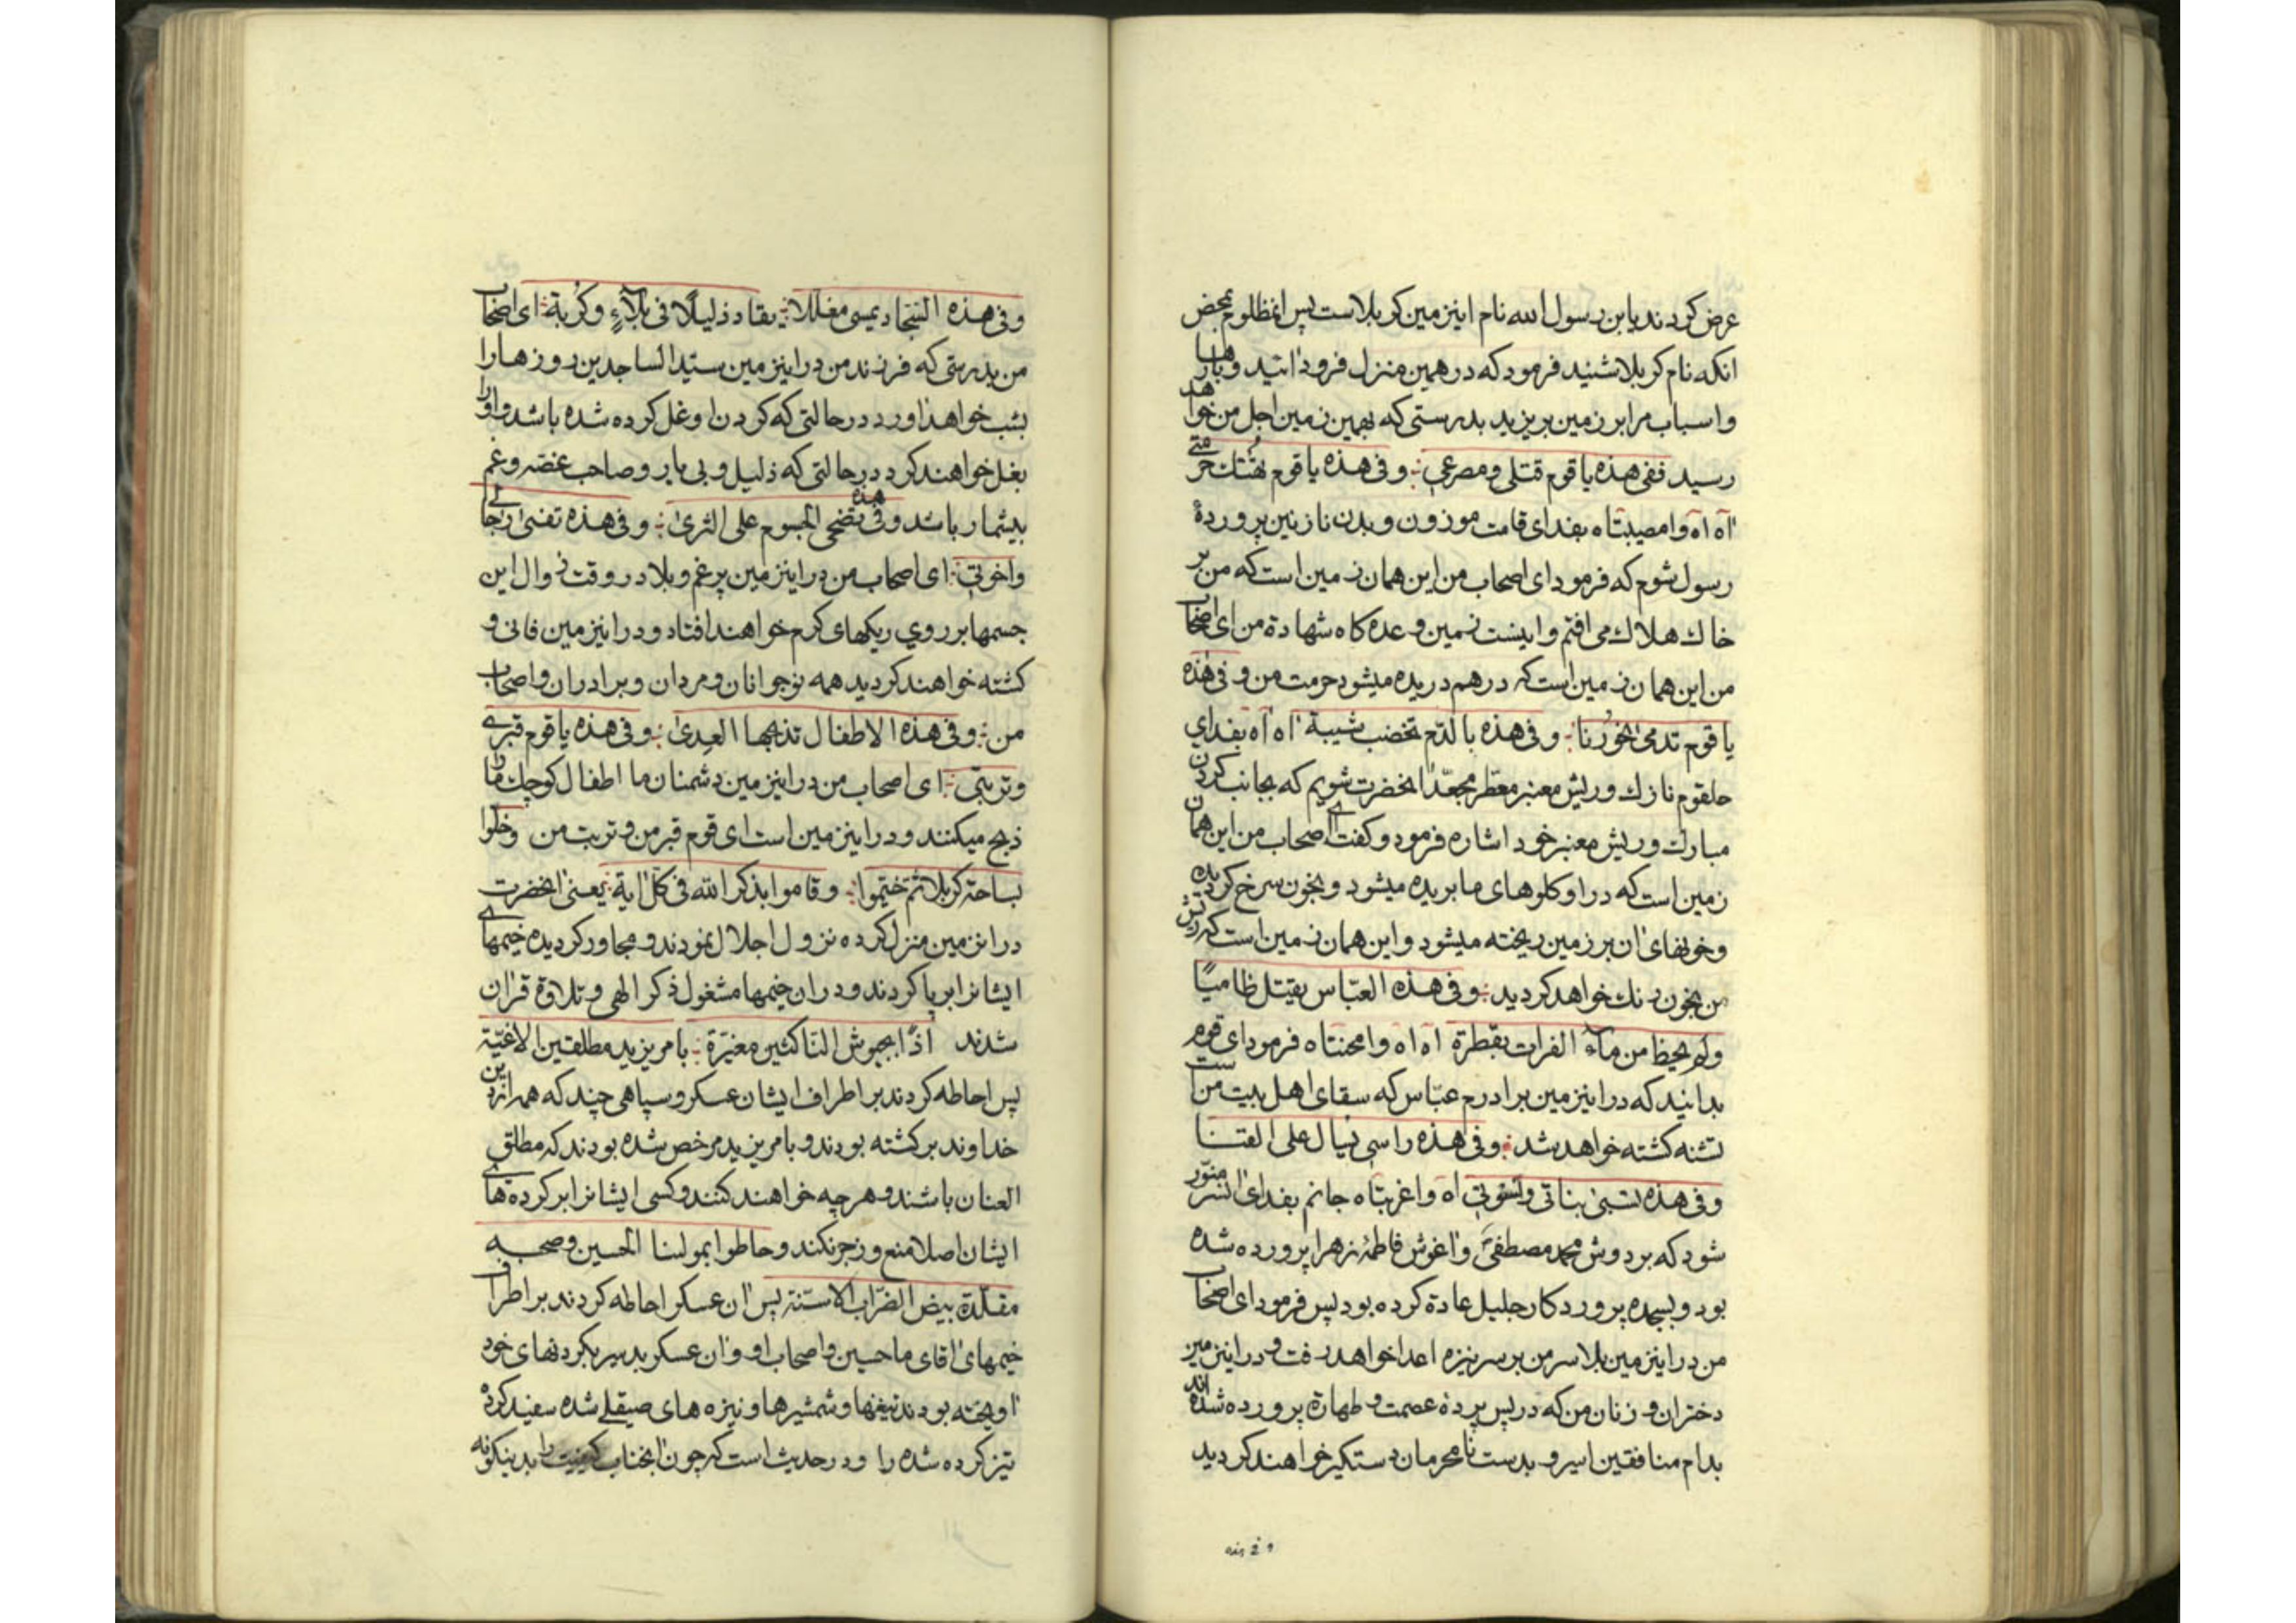 عرض کردند یابن رسول الله نام اینزمین کربلاست پس انمظلوم بمحض
انکه نام کربلا شنید فرمود که در همین منزل فرود ائید و بارها
و اسباب مرا بر زمین بریزید بدرستی که بهمین زمین اجل من خواهد
رسید ففی هذه یا قوم قتلی و مصرعی ؛ و فی هذه یا قوم هُتّك حرمتی
آه آه وا مصیبتاه بفدای قامت موزون و بدن نازنین پروردهٔ
رسول شوم که فرمود ای اصحاب من این همان زمین است که من بر
خاك هلاك می افتم و اینست زمین وعده کاه شهادة من ای اصحاب
من این همان زمین است که در هم دریده میشود حرمت من و فی هذه
یا قوم تدمی نحورنا ؛ و فی هذه بالدّم تخضب شیبة آه آه بفدای
حلقوم نازك و ریش معنبر معطّر مجعّد انحضرت شویم که بجانب کردن
مبارك و ریش معنبر خود اشاره فرمود و کفت ای اصحاب من این همان
زمین است که در او کلوهای ما بریده میشود و بخون سرخ کردیده
و خونهای ان بر زمین ریخته میشود و این همان زمین است که ریش
من بخون رنك خواهد کردید ؛ و فی هذه العبّاس یقتل ظامیًا
ولم یحظ من مآء الفرات بقطرة آه آه وا محنتاه فرمود ای قوم
بدانید که در اینزمین برادرم عبّاس که سقای اهل بیت من است
تشنه کشته خواهد شد ؛ و فی هذه راسی یشال علی القنا
و فی هذه تسبی بناتی و نسوتی آه وا غربتاه جانم بفدای آن سر منوّر
شود که بر دوش محمد مصطفیٰ و اغوش فاطمهٔ زهرا پرورده شده
بود و بسجده پروردکار جلیل عادة کرده بود پس فرمود ای اصحاب
من در اینزمین بلا سر من بر سر نیزه اعدا خواهد رفت و در اینزمین
دختران و زنان من که در پس پردهٔ عصمت و طهارة پرورده شده اند
بدام منافقین اسیر و بدست نامحرمان دستکیر خواهند کردید
و فی هذه السّجّاد یمسی مغللًا ؛ یقاد ذلیلًا فی بلآءٍ و کربة ؛ ای اصحاب
من بدرستی که فرزند من در اینزمین سیّد الساجدین روزها را
بشب خواهد اورد در حالتی که کردن او غل کرده شده باشد و او را
بغل خواهند کرد در حالتی که ذلیل و بی یار و صاحب غصّه و غم
بیشمار باشد و فی هذه تضحی الجسوم علی الثری ؛ و فی هذه تفنی رجالی
و اخوتی ؛ ای اصحاب من در اینزمین پر غم و بلا در وقت زوال این
جسمها بر روی ریکهای کرم خواهند افتاد و در اینزمین فانی و
کشته خواهند کردید همه نوجوانان و مردان و برادران و اصحاب
من ؛ و فی هذه الاطفال تذبحها العدیٰ ؛ و فی هذه یا قوم قبری
و تربتی ؛ ای اصحاب من در اینزمین دشمنان ما اطفال کوچك ما را
ذبح میکنند و در اینزمین است ای قوم قبر من و تربت من و حلّوا
بساحة کربلا ثم خیّموا ؛ و قاموا بذکر الله فی کل ایة ؛ یعنی انحضرت
در انزمین منزل کرده نزول اجلال نمودند و مجاور کردیده خیمهای
ایشانرا برپا کردند و در ان خیمها مشغول ذکر الهی و تلاوة قران
شدند اذًا بجیوش النّاکثین مغیرة ؛ بامر یزید مطلقین الاعنّة
پس احاطه کردند بر اطراف ایشان عسکر و سپاهی چند که همه از دین
خداوند برکشته بودند و بامر یزید مرخص شده بودند که مطلق
العنان باشند و هر چه خواهند کنند و کسی ایشانرا بر کرده های
ایشان اصلا منع و زجر نکند و حاطوا بمولنا الحسین و صحبه
مقلّدة بیض الضراب الاسنّة پس ان عسکر احاطه کردند بر اطراف
خیمهای اقای ما حسین و اصحاب او و ان عسکر بدسیر بکردنهای خود
اویخته بودند تیغها و شمشیرها و نیزه های صیقلی شده سفید کرده
تیز کرده شده را و در حدیث است که چون انجناب کیفیت را بدینکونه